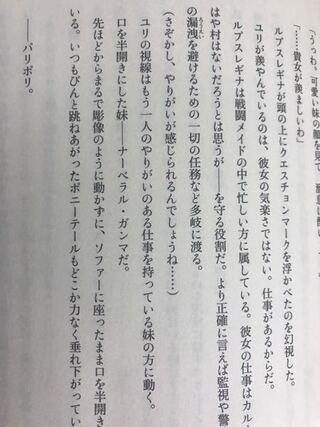 「うっわ、可愛い妹の顔を見て、
「……貴女が羨ましいわ」
ルプスレギナが頭の上にクエスチョンマークを浮かべたのを幻視した。
ユリが羨んでいるのは、彼女の気楽さではない。仕事があるからだ。
ルプスレギナは戦闘メイドの中で忙しい方に属している。彼女の仕事はカル
はや村はないだろうとは思うが――を守る役割だ。より正確に言えば監視や警
の漏洩を避けるための一切の任務など多岐に渡る。
(さぞかし、やりがいが感じられるんでしょうね……)
ユリの視線はもう一人のやりがいのある仕事を持っている妹の方に動く。
口を半開きにした妹――ナーベラル・ガンマだ。
先ほどからまるで彫像のように動かずに、ソファーに座ったまま口を半開き
いる。いつもぴんと跳ねあがったポニーテールもどこか力なく垂れ下がってい
――バリボリ。